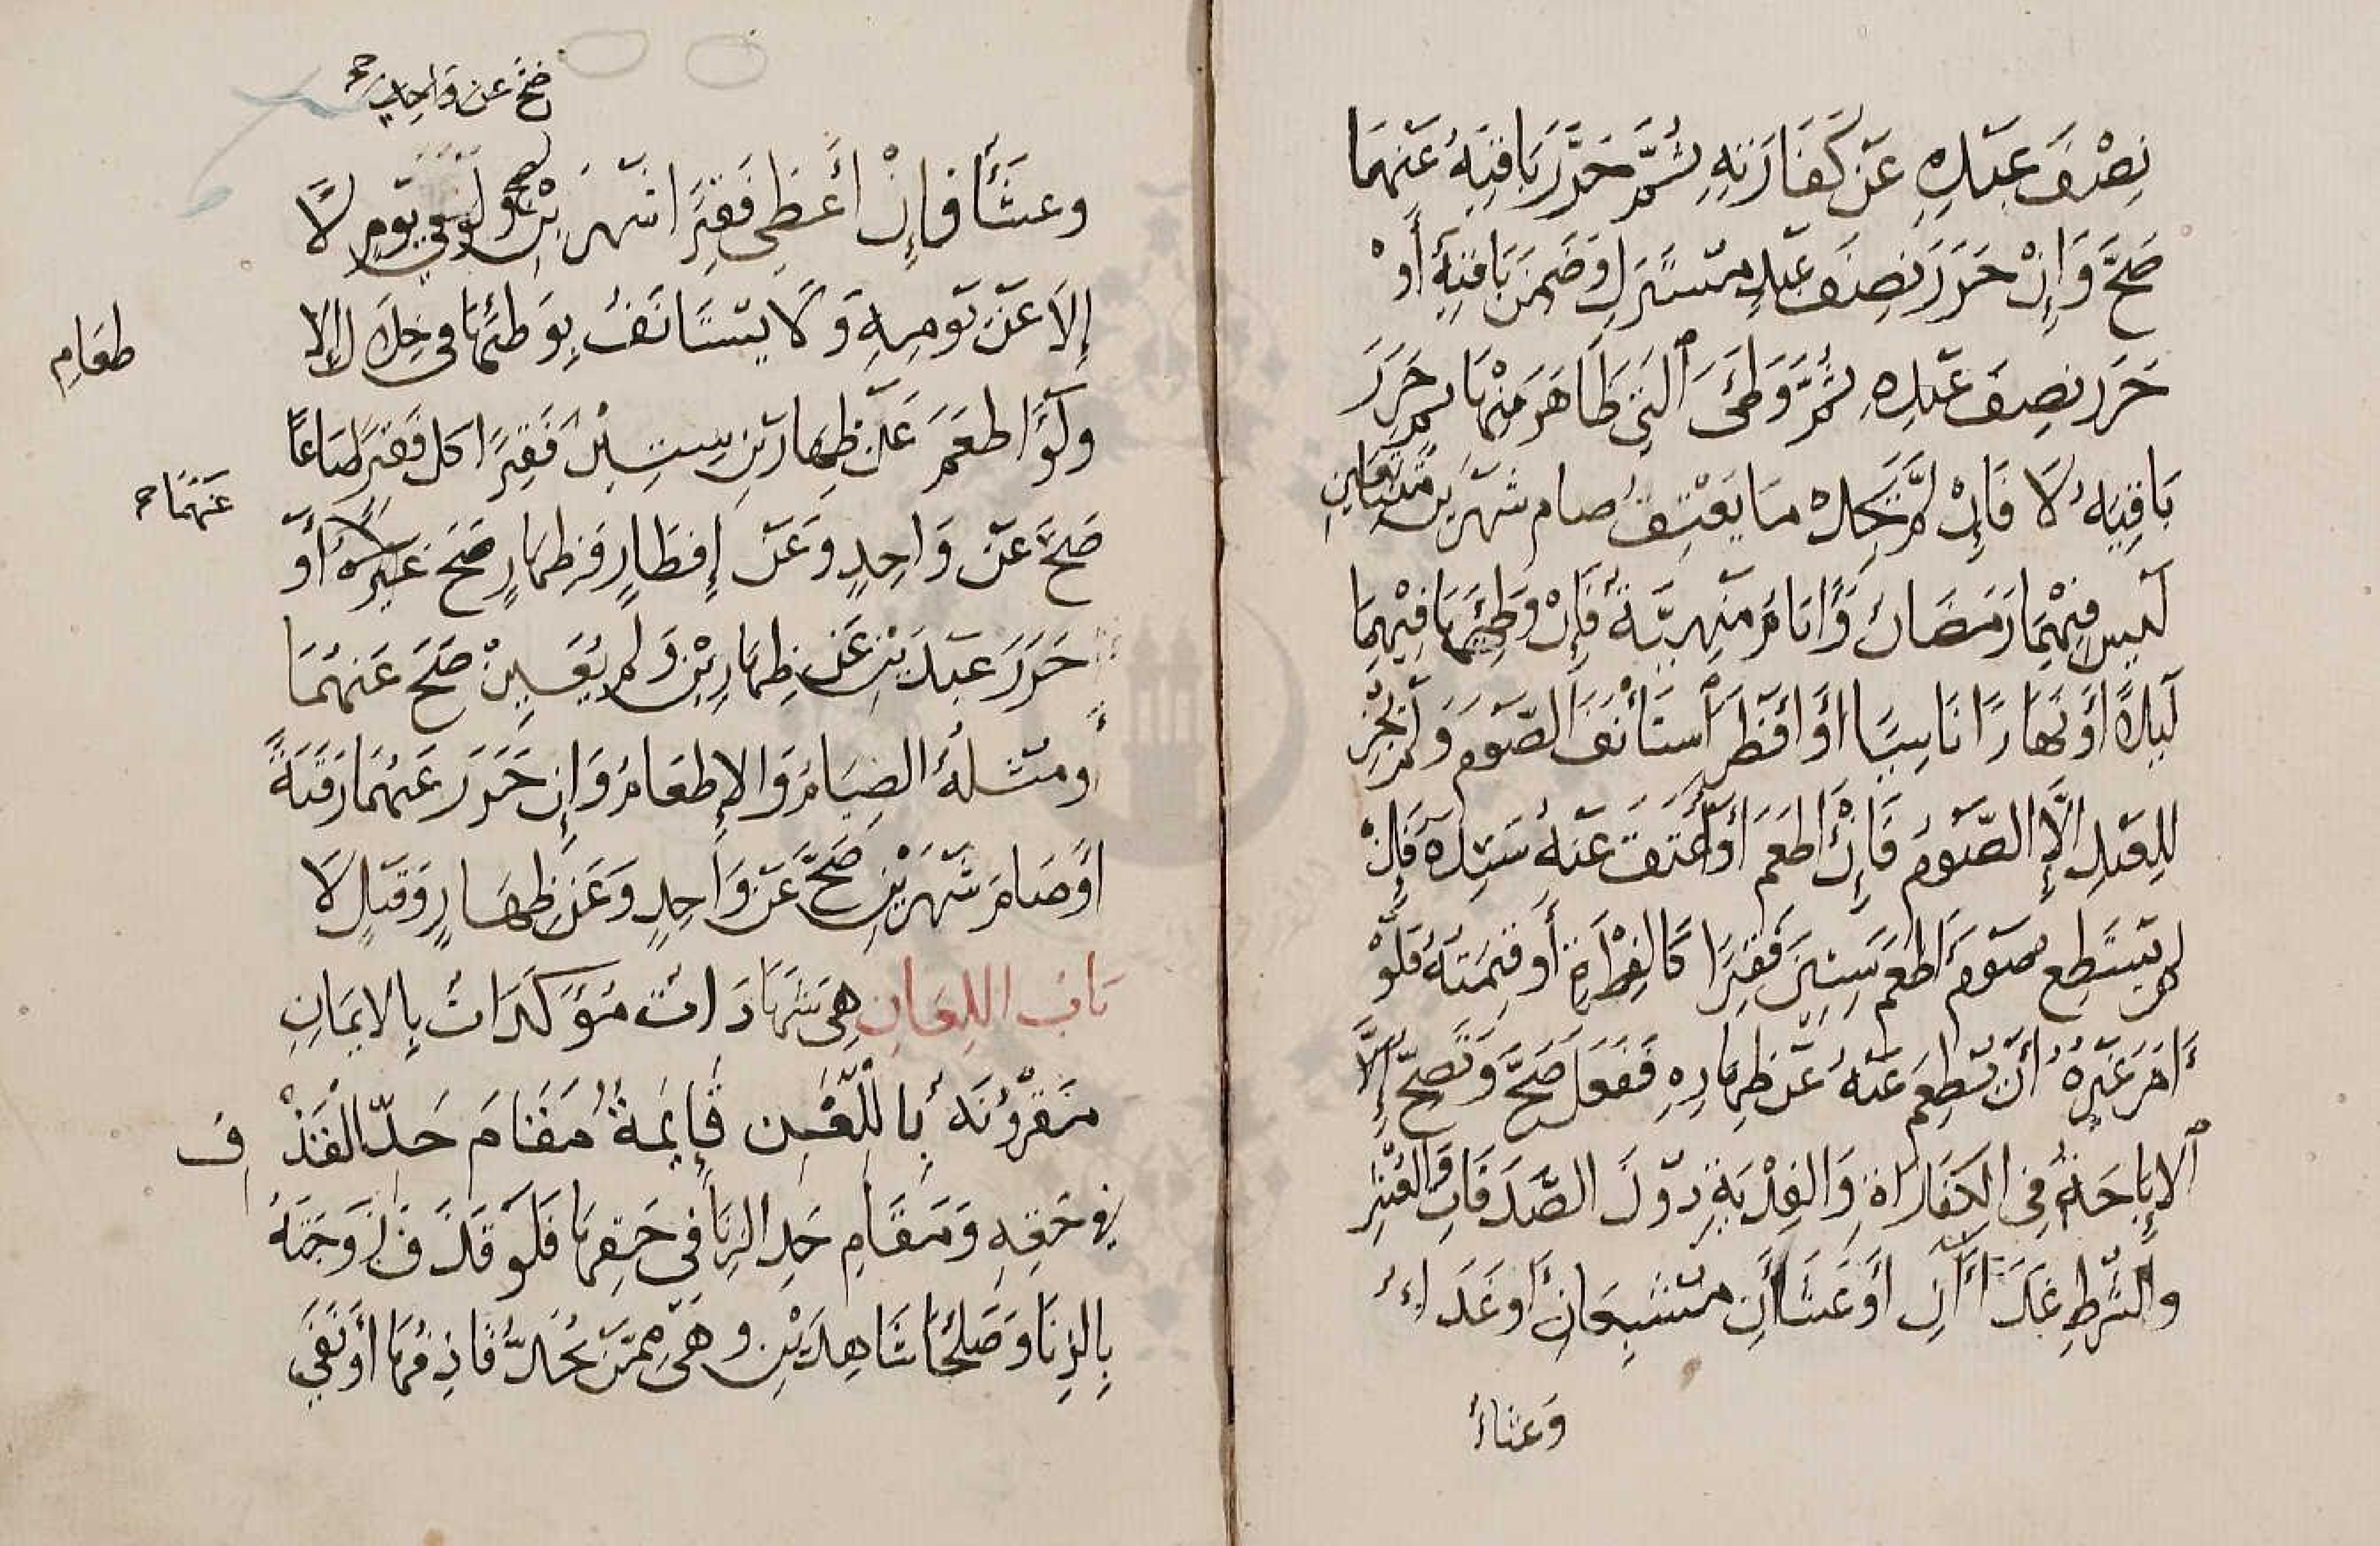 نِصْفَ عَبْدِهِ عَنْ كَفَّارَتِهِ ثُمَّ حَرَّرَ بَاقِيَهُ عَنْهُمَا
صَحَّ وَإِنْ حَرَّرَ نِصْفَ عَبْدٍ مُشْتَرَكٍ وَضَمِنَ بَاقِيَهُ أَوْ
حَرَّرَ نِصْفَ عَبْدِهِ ثُمَّ وَطِئَ ٱلَّتِي ظَاهَرَ مِنْهَا ثُمَّ حَرَّرَ
بَاقِيَهُ لَا فَإِنْ لَمْ يَجِدْ مَا يَعْتِقُ صَامَ شَهْرَيْنِ مُتَتَابِعَيْنِ
لَيْسَ فِيْهِمَا رَمَضَانُ وَأَيَّامٌ مَنْهِيَّةٌ فَإِنْ وَطِئَهَا فِيْهِمَا
لَيْلًا أَوْ نَهَارًا نَاسِيًا أَوْ أَفْطَرَ ٱسْتَأْنَفَ الصَّوْمَ وَلَمْ يُجْزِ
لِلعَبْدِ إِلَّا الصَّوْمُ فَإِنْ أَطْعَمَ أَوْ أَعْتَقَ عَنْهُ سَيِّدُهُ فَإِنْ
لَمْ يَسْتَطِعْ صَوْمَ أَطْعَمَ سِتِّيْنَ فَقِيْرًا كَالْفِطْرَةِ أَوْ قِيْمَتَهُ فَلَوْ
أَمَرَ غَيْرَهُ أَنْ يُطْعِمَ عَنْهُ عَنْ ظِهَارِهِ فَفَعَلَ صَحَّ وَتَصِحُّ إِلَّا
ٱلإِبَاحَةُ فِي الكَفَّارَاةِ وَالفِدْيَةِ دُوْنَ الصَّدَقَاتِ وَالعُشْرِ
وَالشَّرْطِ غَدَاأَانِ أَوْ عَشَاأَنِ مُشْبِعَانِ أَوْ غَدَاءٌ
وَعَشَاءٌ
صَحَّ عَنْ وَاحِدٍ صح
وعَشَأً فَإِنْ أَعْطَى فَقِيْرًا شَهْرَيْنِ صَحَّ وَلَوْ فِي يَوْمٍ لَا
إِلَا عَنْ يَوْمِهِ وَلَا يَسْتَأْنَفُ بِوَطْئِهَا فِي خِلَالِ الإِ
طعَامِ
وَلَوْ أَطْعَمَ عَنْ ظِهَارَيْنِ سِتِيْنَ فَقِيْرًا كُلَّ فَقِيْرٍ صَاعًا
عَنْهُمَا صح
صَحَّ عَنْ وَاحِدٍ وَعَنْ إِفْطَارٍ وَظِهَارٍ صَحَّ أَوْ
حَرَّرَ عَبْدَيْنِ عَنْ ظِهَارَيْنِ وَلَمْ يُعَيِّنْ صَحَّ عَنْهُمَا
وَمِثْلُهُ الصِيَامُ وَالإِطْعَامُ وَإِنْ حَرَّرَ عَنْهُمَا رَقَبَةً
أَوْ صَامَ شَهْرَيْنِ صَحَّ عَنْ وَاحِدٍ وَعَنْ ظِهَارٍ وَقَتْلٍ لَا
بَابُ اللِعَانِ هِيَ شَهَادَاتٌ مُؤَكَّدَاتٌ بِالايْمَانِ
مَقْرُوْنَةٌ بِاللَّعْنِ قَائِمَةٌ مَقَامَ حَدِّ الْقَذْفِ
فِي حَقِّهِ وَمَقَامِ حَدِ الزِنَا فِي حَقِّهَا فَلَوْ قَذَفَ زَوْجَتَهُ
بِالزِنَا وَصَلَحَا شَاهِدَيْنِ وَهِيَ مِمَّنْ يُحَدُّ قَاذِفُهَا أَوْ نَفَى